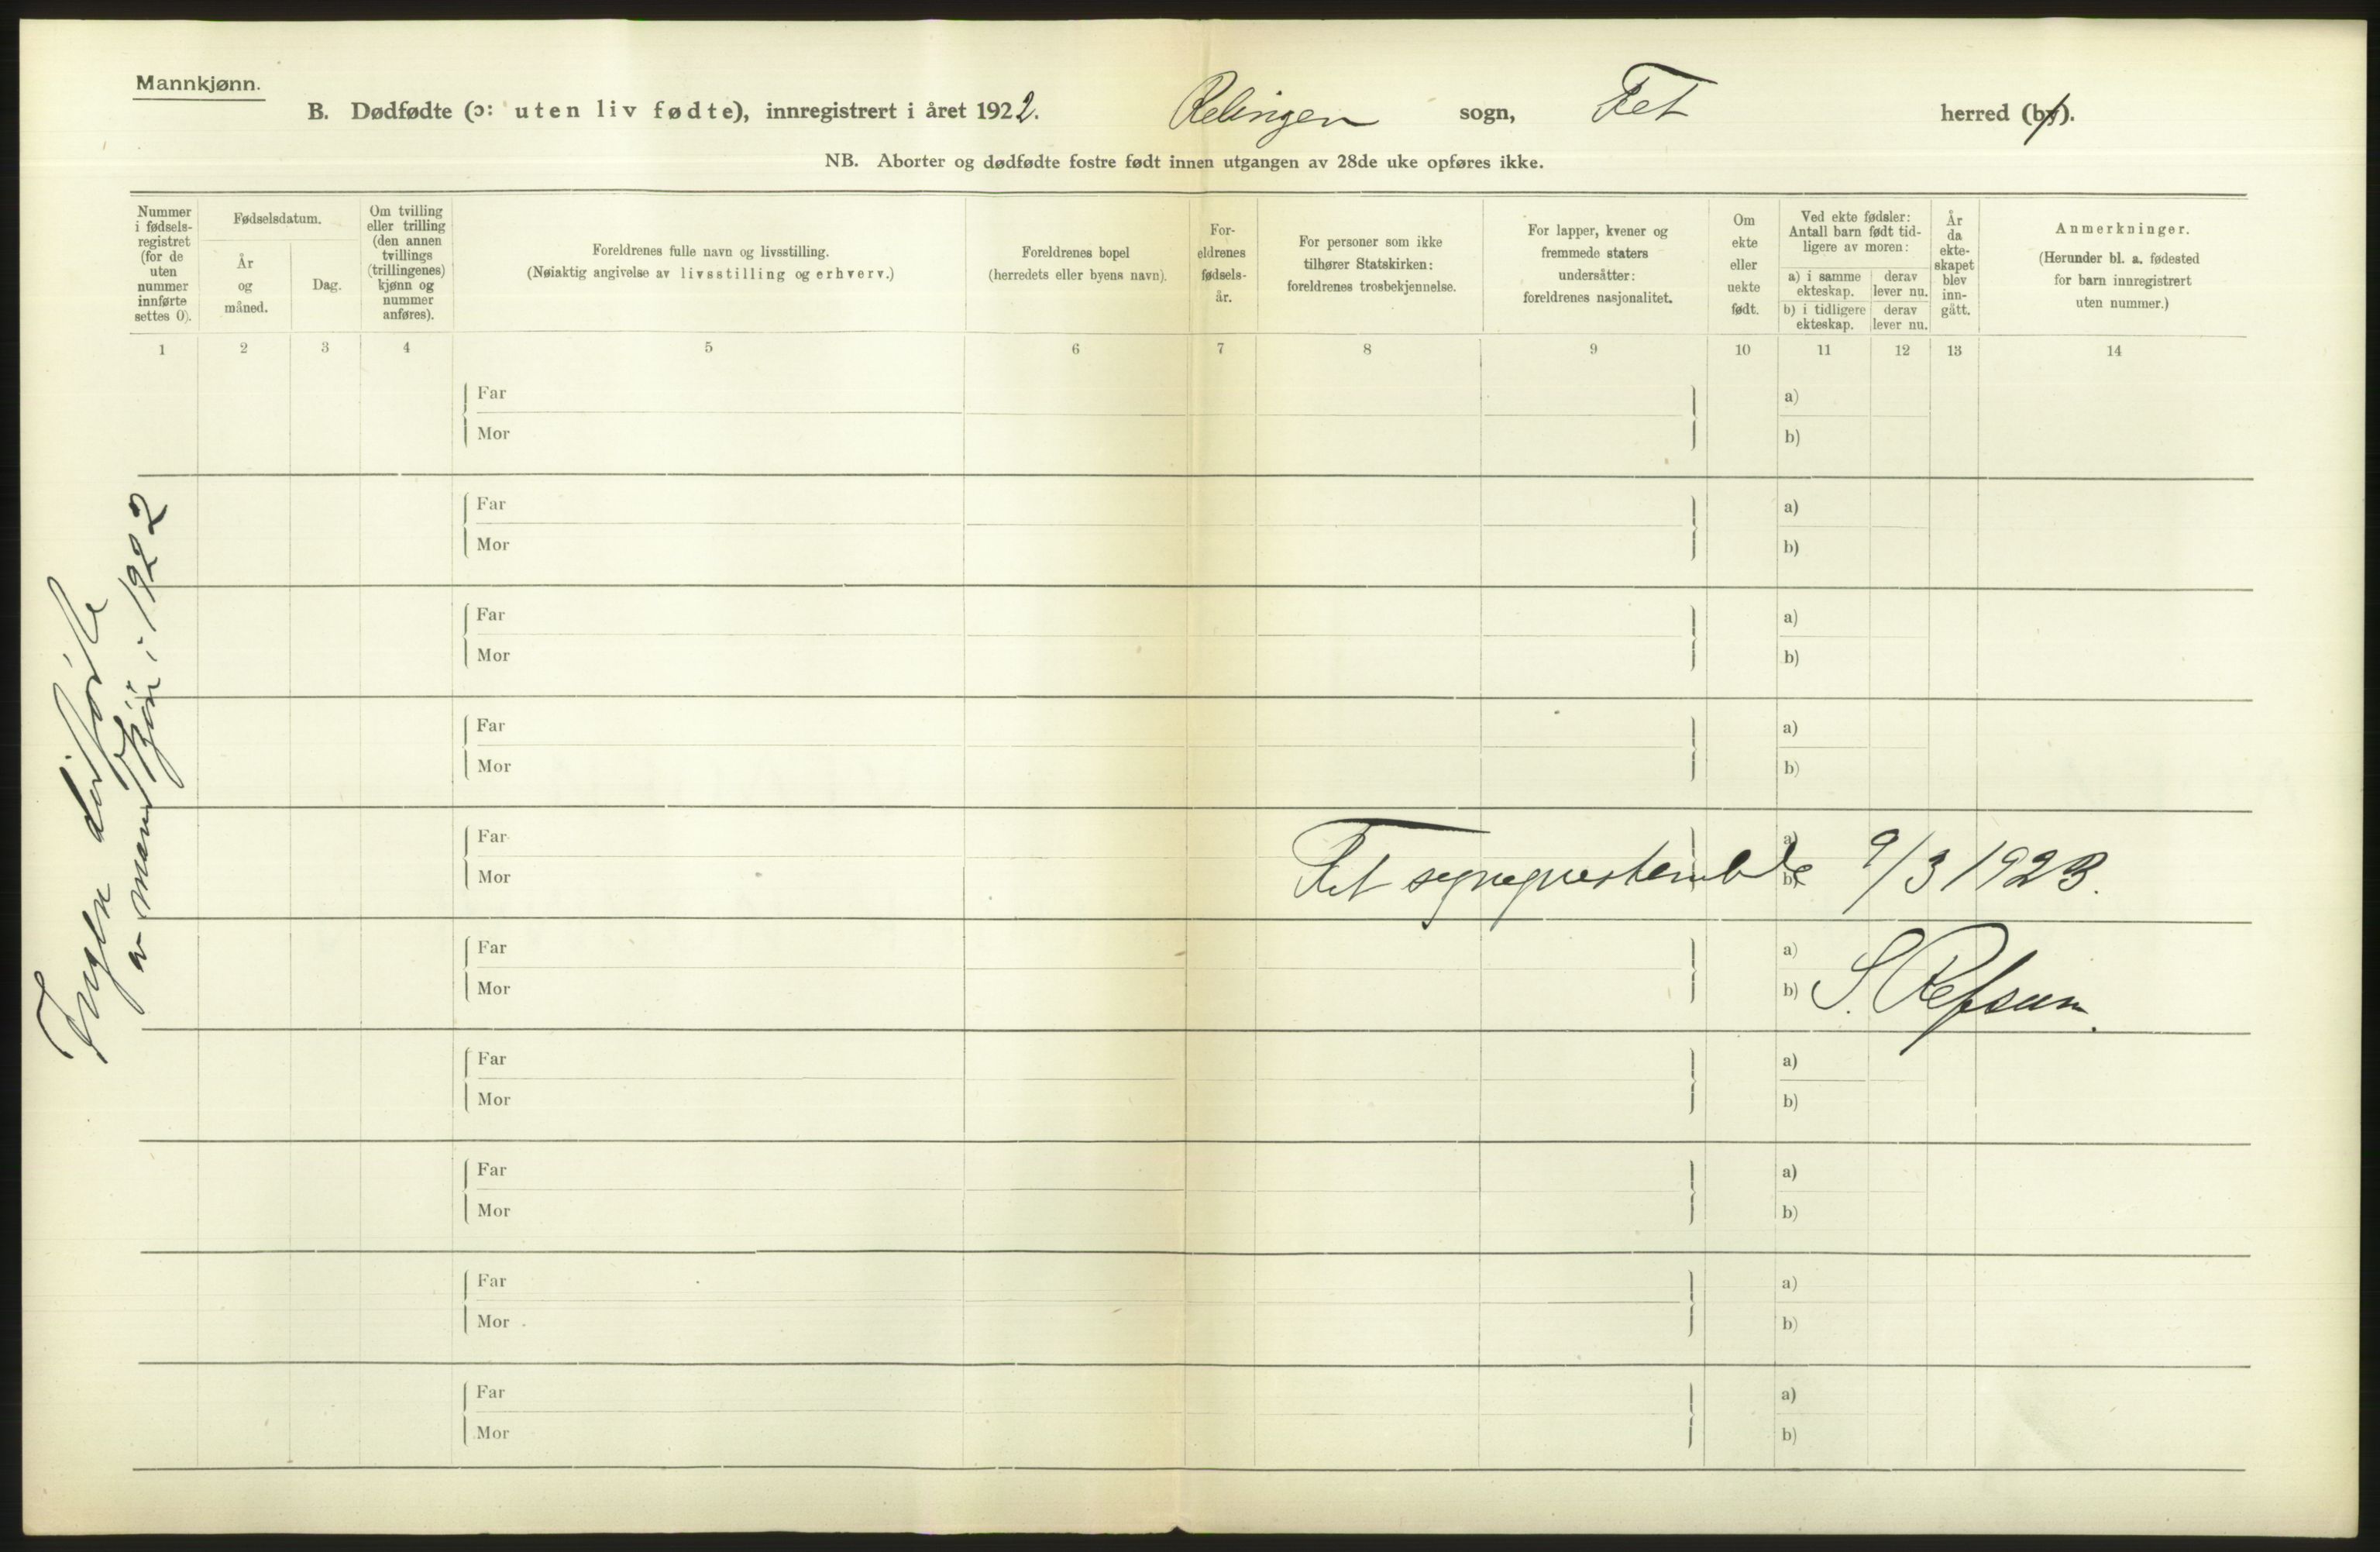 Mannkjønn.
B. Dødfødte (ɔ: uten liv fødte), innregistrert i året 1922. Relingen sogn, Fet herred (by).
NB. Aborter og dødfødte fostre født innen utgangen av 28de uke opføres ikke.
Nummer
i fødsels-
registret
(for de
uten
nummer
innførte
settes 0).
Fødselsdatum.
År
og
måned.
Dag.
Om tvilling
eller trilling
(den annen
tvillings
(trillingenes)
kjønn og
nummer
anføres).
Foreldrenes fulle navn og livsstilling.
(Nøiaktig angivelse av livsstilling og erhverv.)
Foreldrenes bopel
(herredets eller byens navn).
For-
eldrenes
fødsels-
år.
For personer som ikke
tilhører Statskirken:
foreldrenes trosbekjennelse.
For lapper, kvener og
fremmede staters
undersåtter:
foreldrenes nasjonalitet.
Om
ekte
eller
uekte
født.
Ved ekte fødsler:
Antall barn født tid-
ligere av moren:
a) i samme
ekteskap.
derav
lever nu.
b) i tidligere
ekteskap.
derav
lever nu.
År
da
ekte-
skapet
blev
inn-
gått.
Anmerkninger.
(Herunder bl. a. fødested
for barn innregistrert
uten nummer.)
1 2 3 4 5 6 7 8 9 10 11 12 13 14
Far a)
Mor b)
Far a)
Mor b)
Far a)
Mor b)
Far a)
Mor b)
Far a)
Mor b)
Fet sogneprestembede 9/3 1923.
Far a)
Mor b)
S. Refsum.
Far a)
Mor b)
Far a)
Mor b)
Far a)
Mor b)
Far a)
Mor b)
Ingen dødfødte
av mandkjøn i 1922